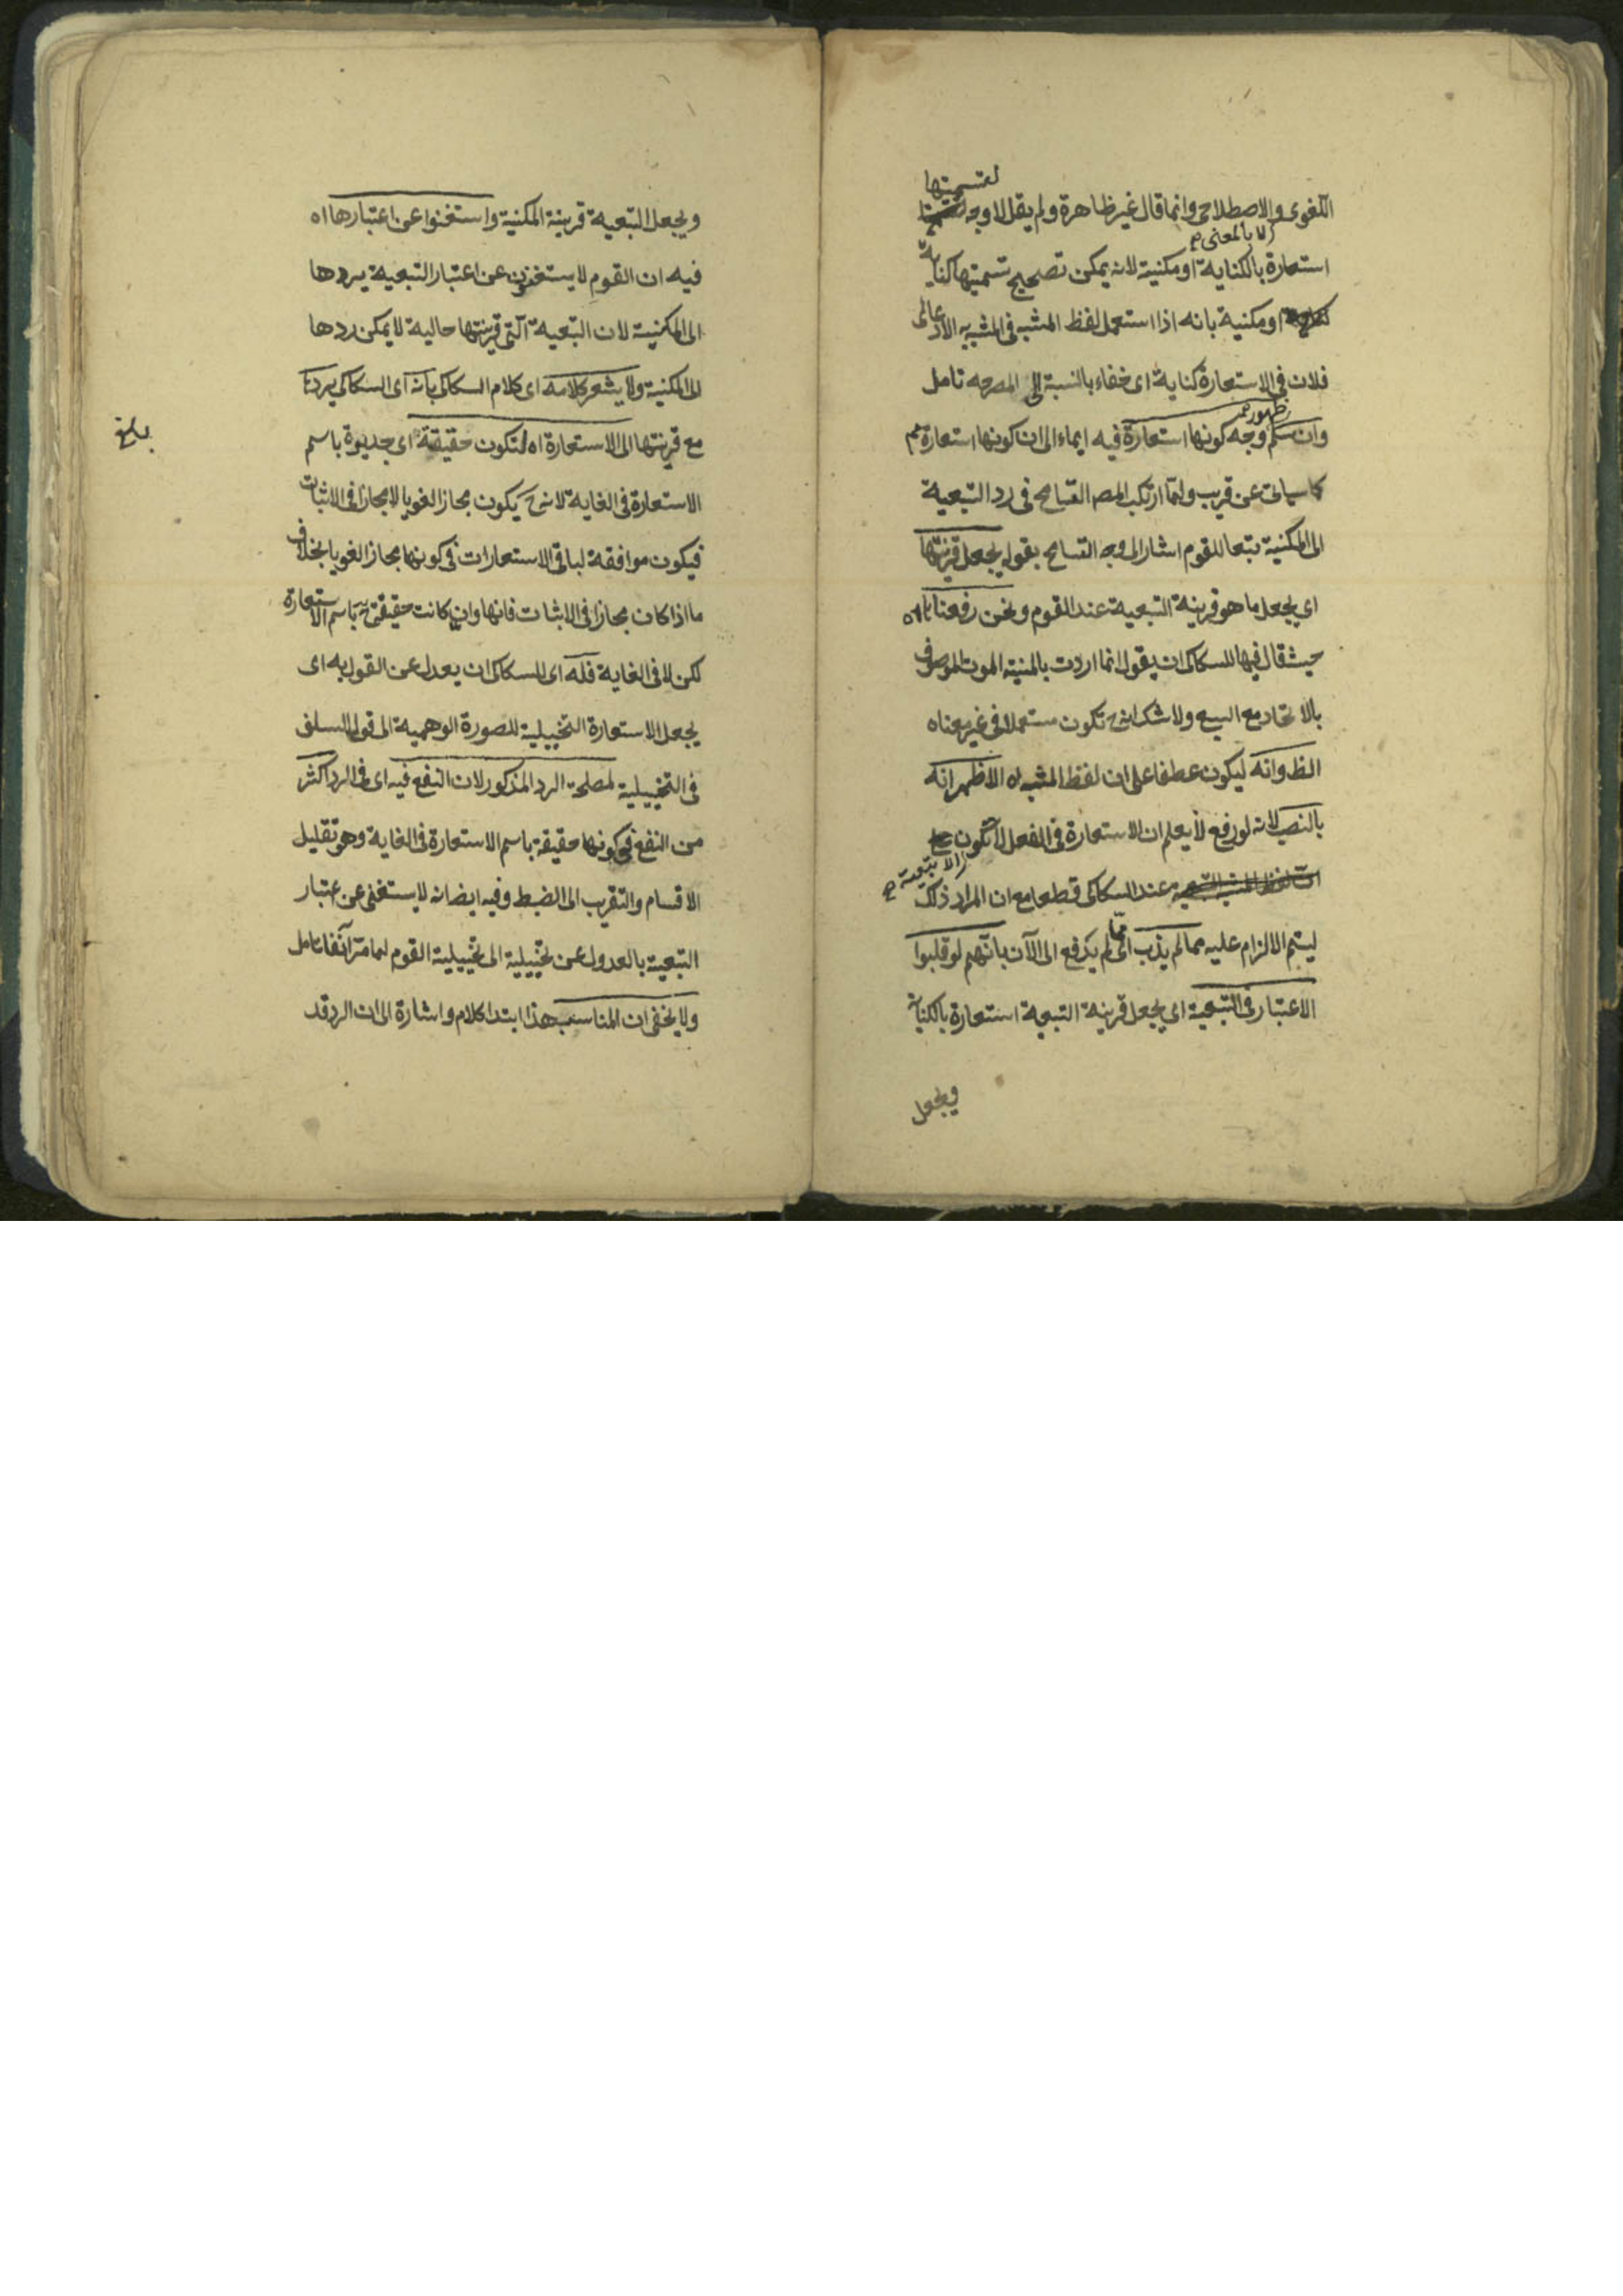 لتسميتها
اللغوى والاصطلاحى وانما قال غير ظاهرة ولم يقل لا وجه
لا بالمعنى
استعارة بالكناية او مكنية لانه يمكن تصحيح تسميتها كناية
او مكنية بانه اذا استعمل لفظ المشبه فى المشبه الادعائى
فلان فى الاستعارة كناية اى خفاء بالنسبة الى المصرحه تامل
ظهور
وان سلم وجه كونها استعارة فيه ايماء الى ان كونها استعارة
كما سياتى عن قريب ولما ارتكب المصه التسامح فى رد التبعية
الى المكنية تبعا للقوم اشار الى وجه التسامح بقوله بجعل قرينتها
اى بجعل ما هو قرينة التبعية عند القوم ونحن رفعنا
حيث قال فيها للسكاكى ان يقول انما اردت بالمنية الموت الموصوف
بالاتحاد مع السبع ولا شك انه ح تكون مستعملا فى غير معناه
الظ وانه ليكون عطفا على ان لفظ المشبه اه الاظهر انه
بالنصب لانه لو رفع لا يعلم ان الاستعارة فى الفعل لا تكون
الا تبعية
عند السكاكى قطعا مع ان المراد ذلك
ليتم الالزام عليه مما لم يذب اى مما لم يدفع الى الآن بانهم لو قلبوا
الاعتبار فى التبعية اى بجعل قرينة التبعية استعارة بالكناية
وبجعل
وبجعل التبعية قرينة المكنية واستغنوا عن اعتبارها اه
فيه ان القوم لا يستغنون عن اعتبار التبعية بردها
الى المكنية لان التبعية التى قرينتها حالية لا يمكن ردها
الى المكنية ولا يشعر كلامه اى كلام السكاكى بانه اى السكاكى يردها
مع قرينتها الى الاستعارة اه لتكون حقيقة اى جديرة باسم
بلغ
الاستعارة فى الغاية لانه ح يكون مجازا لغويا لا مجازا فى الاثبات
فيكون موافقة لباقى الاستعارات فى كونها مجازا لغويا بخلاف
ما اذا كان مجازا فى الاثبات فانها وان كانت حقيقة ح باسم الاستعارة
لكن لا فى الغاية فله اى للسكاكى ان يعدل عن القول به اى
بجعل الاستعارة التخييلية للصورة الوهمية الى قول السلف
فى التخييلية لمصلحة الرد المذكور لان النفع فيه اى فى الرد اكثر
من النفع فى كونها حقيقة باسم الاستعارة فى الغاية وهو تقليل
الاقسام والتقريب الى الضبط وفيه ايضا انه لا يستغنى عن اعتبار
التبعية بالعدول عن تخييلية الى تخييلية القوم لما مر آنفا تامل
ولا يخفى ان المناسب هذا ابتدا كلام واشارة الى ان الرد قد